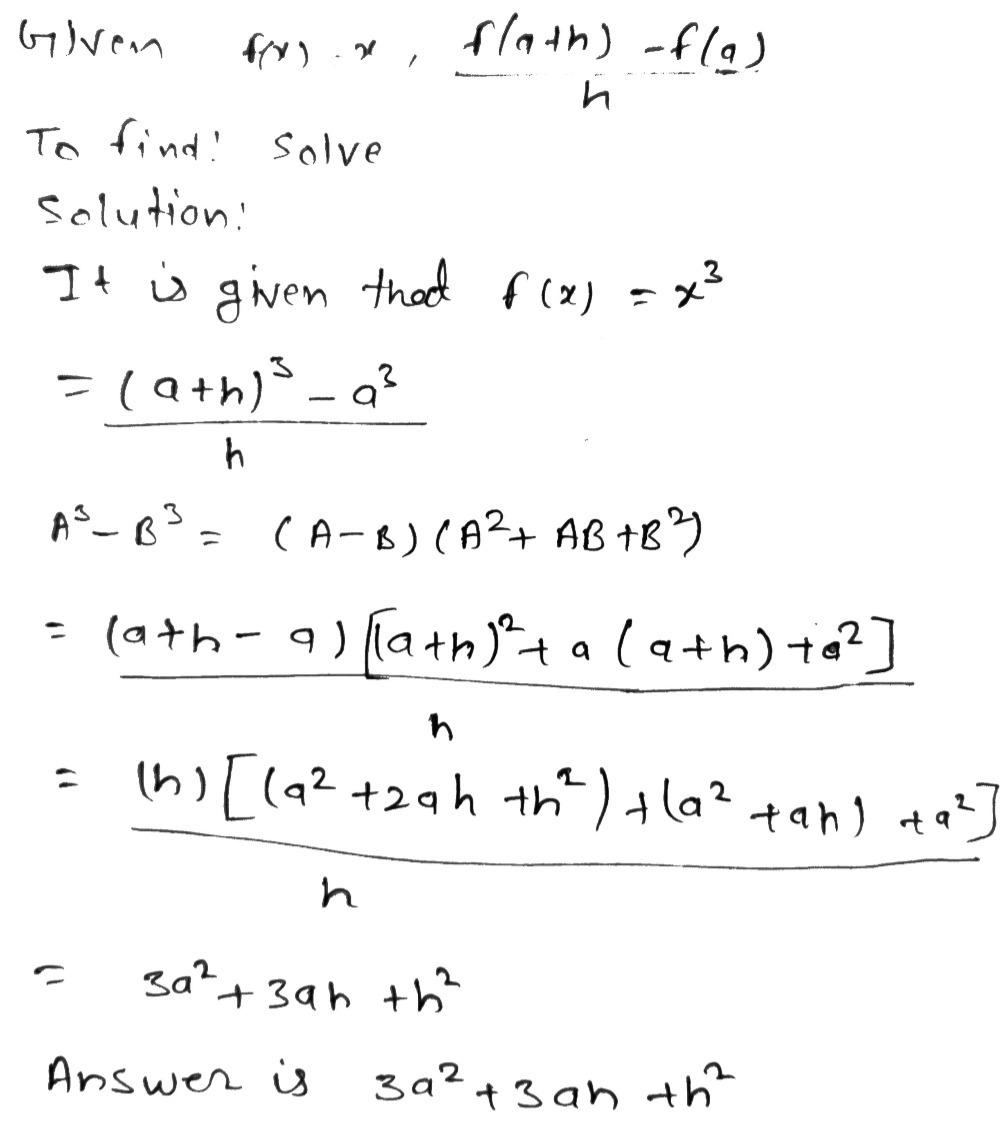 Given f(x) = x , f(a+h) - f(a)
h
To find: solve
Solution:
It is given that f(x) = x³
= (a+h)³ - a³
h
A³ - B³ = (A-B) (A² + AB + B²)
= (a+h - a) [(a+h)² + a (a+h) + a²]
h
= (h) [(a² + 2ah + h²) + (a² + ah) + a²]
h
= 3a² + 3ah + h²
Answer is 3a² + 3ah + h²